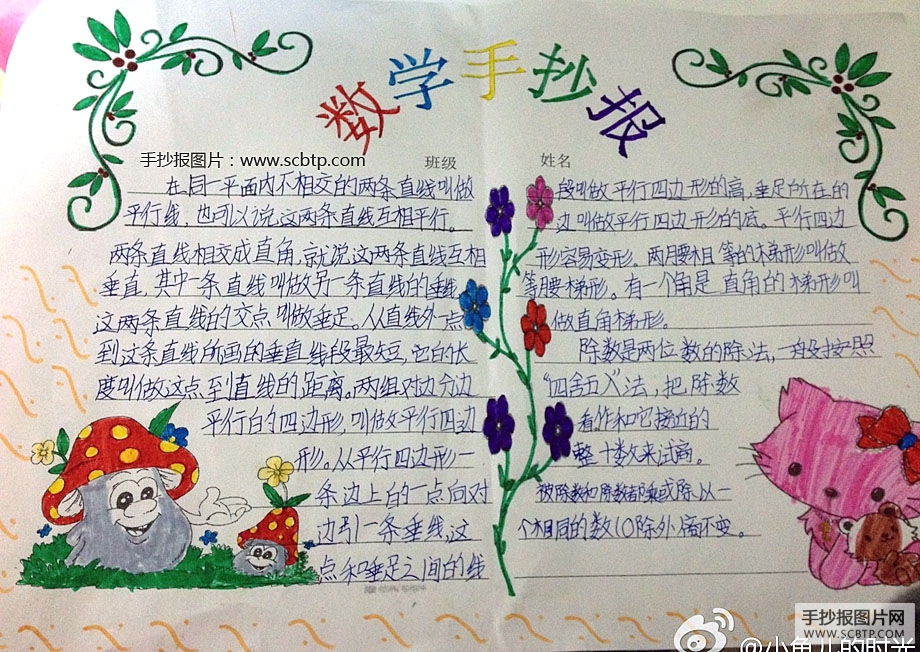 数学手抄报
手抄报图片：www.scbtp.com
班级
姓名
在同一平面内不相交的两条直线叫做
平行线，也可以说这两条直线互相平行。
两条直线相交成直角，就说这两条直线互相
垂直，其中一条直线叫做另一条直线的垂线
这两条直线的交点叫做垂足。从直线外一点
到这条直线所画的垂直线段最短，它的长
度叫做这点到直线的距离。两组对边分边
平行的四边形，叫做平行四边
形。从平行四边形一
条边上的一点向对
边引一条垂线，这
点和垂足之间的线
段叫做平行四边形的高，垂足所在的
边叫做平行四边形的底。平行四边
形容易变形。两腰相等的梯形叫做
等腰梯形。有一个角是直角的梯形叫
做直角梯形。
除数是两位数的除法，一般按照
“四舍五入”法，把除数
看作和它接近的
整十数来试商。
被除数和除数都乘或除以一
个相同的数（0除外）商不变。
手抄报图片网
WWW.SCBTP.COM
@小鱼儿的时光